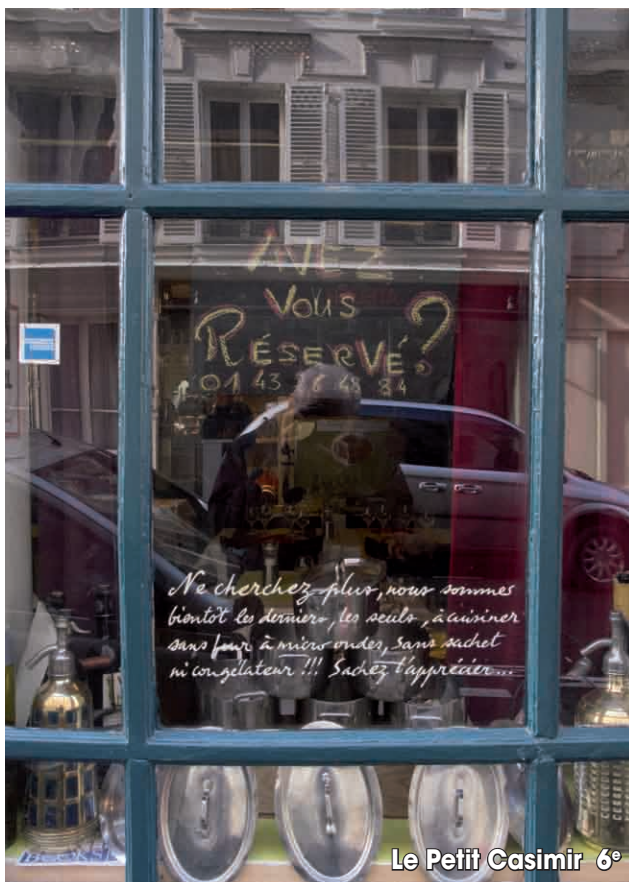 AVEZ
VOUS
RÉSERVÉ?
01 43 26 48 84
Ne cherchez plus, nous sommes
bientôt les derniers, les seuls, à cuisiner
sans four à micro ondes, sans sachet
ni congélateur !!! Sachez l'apprécier...
Le Petit Casimir 6e